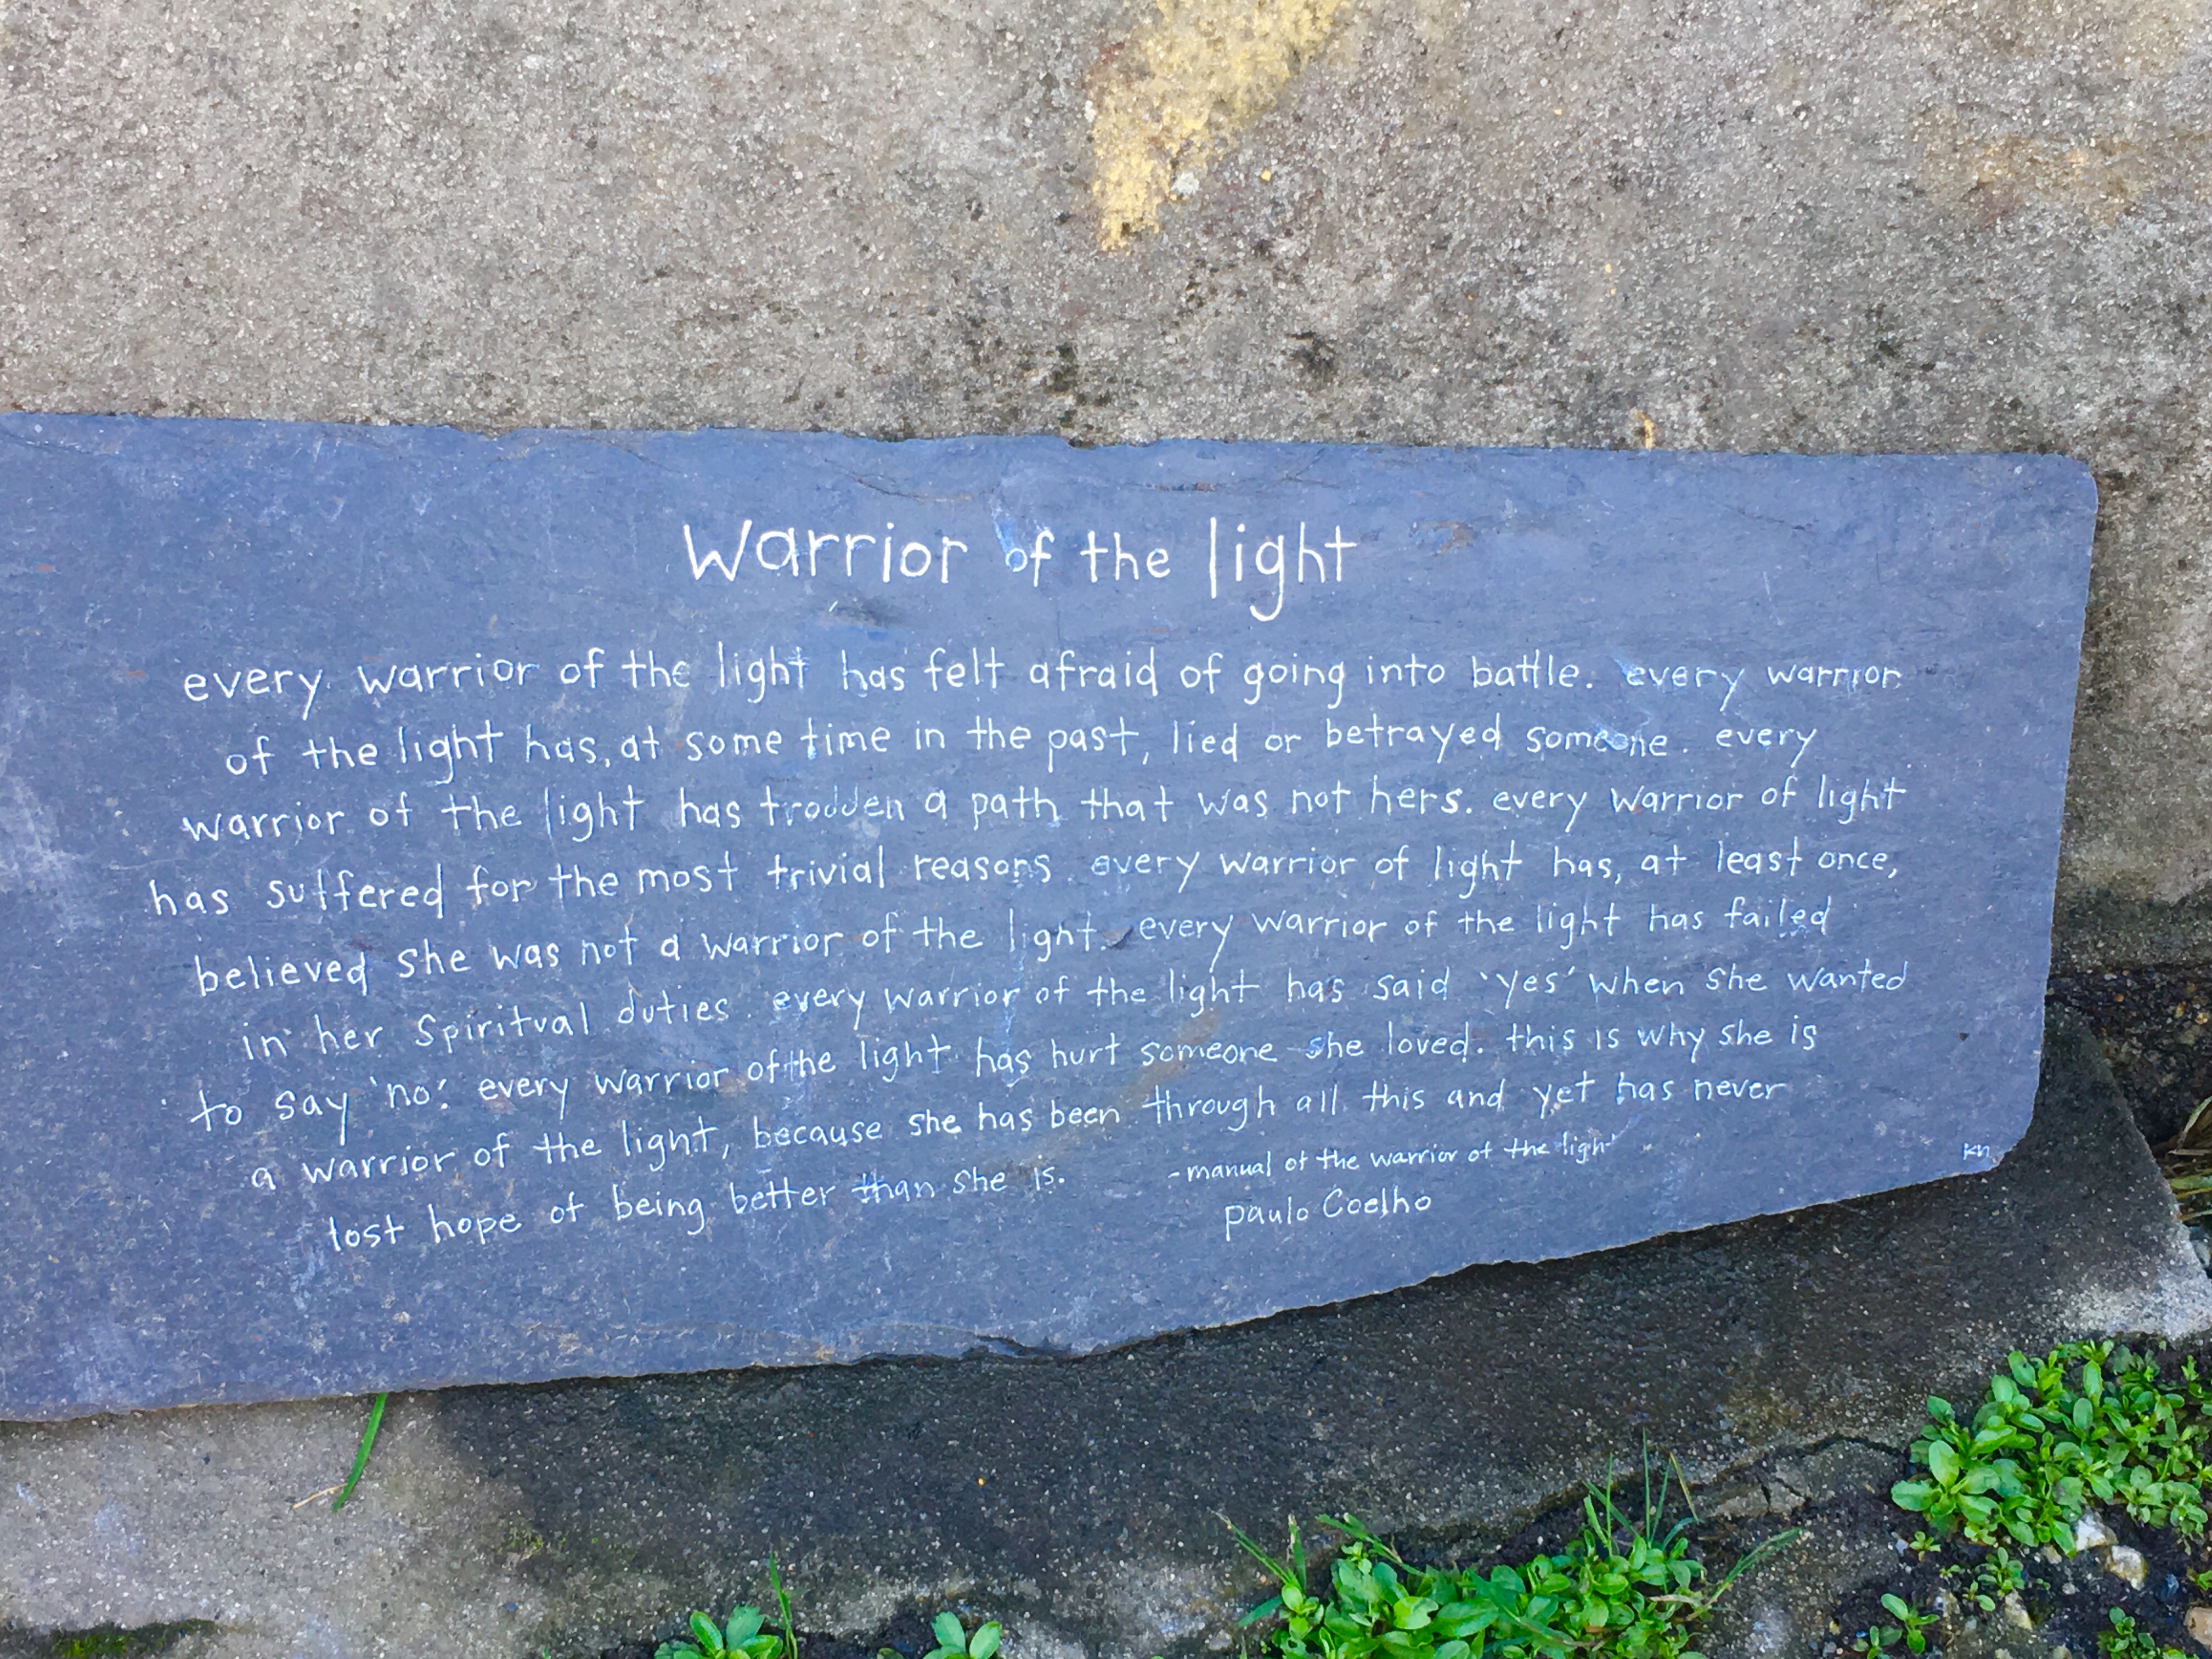 Warrior of the light
every warrior of the light has felt afraid of going into battle. every warrior
of the light has, at some time in the past, lied or betrayed someone. every
warrior of the light has trodden a path that was not hers. every warrior of light
has suffered for the most trivial reasons. every warrior of light has, at least once,
believed she was not a warrior of the light. every warrior of the light has failed
in her spiritual duties. every warrior of the light has said 'yes' when she wanted
to say 'no'. every warrior of the light has hurt someone she loved. this is why she is
a warrior of the light, because she has been through all this and yet has never
lost hope of being better than she is.
- manual of the warrior of the light
paulo Coelho
kn